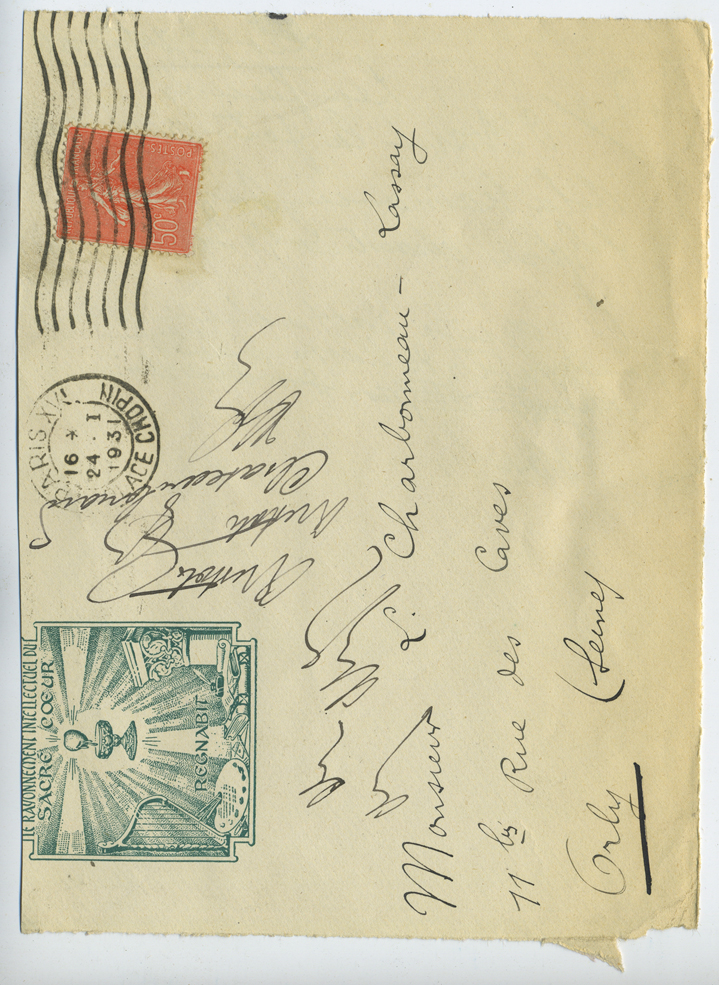 LE RAYONNEMENT INTELLECTUEL DU
SACRÉ CŒUR
REGNABIT
PARIS XVI
16 *
24 · I
1931
PLACE CHOPIN
POSTES
50c
Monsieur L. Charbonneau-Lassay
11 bis Rue des Caves
Orly (Seine)